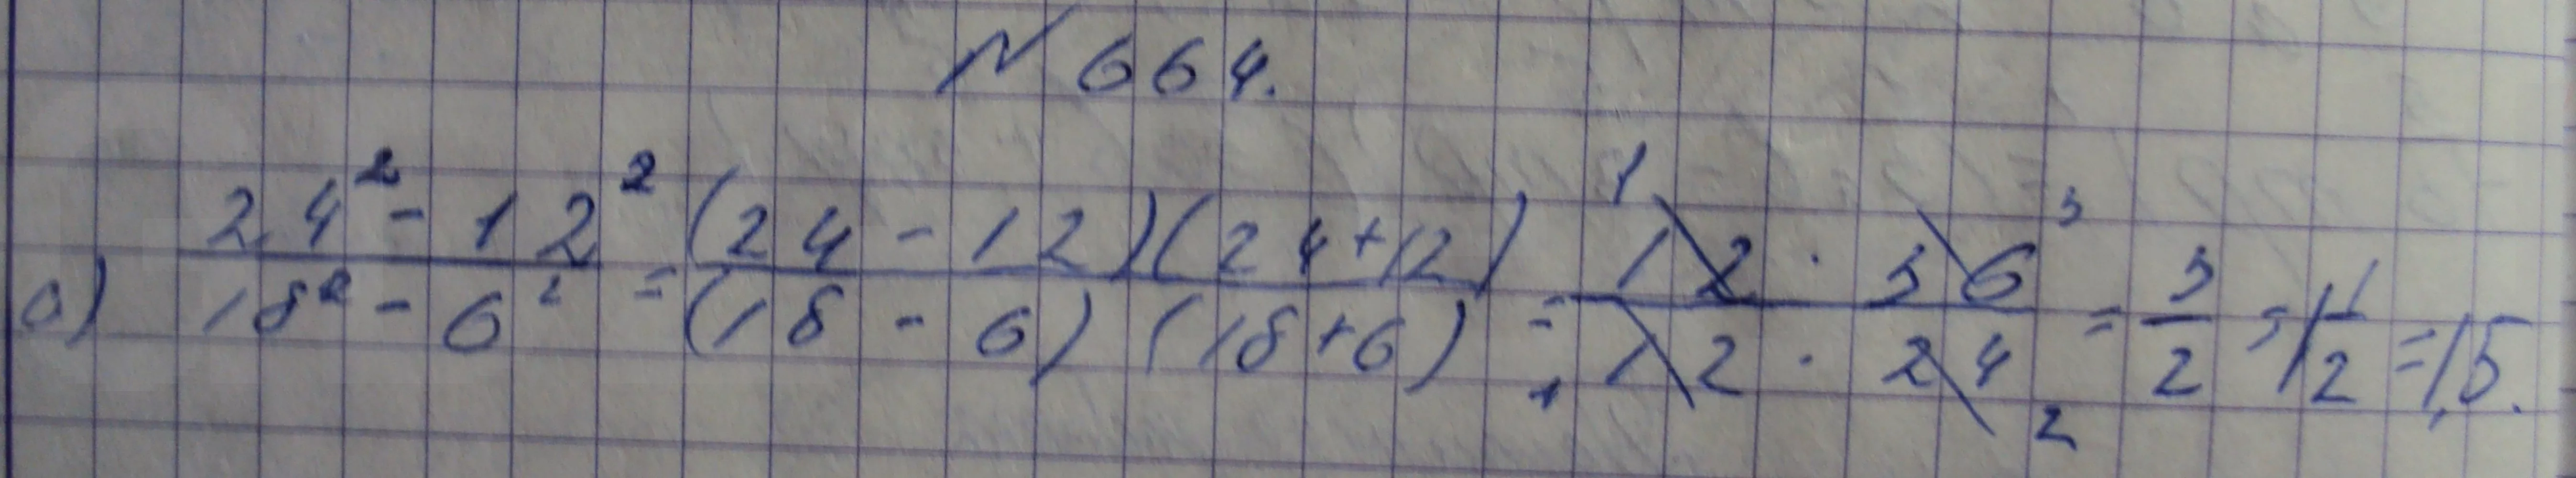 № 664.
а) (24² - 12²)/(18² - 6²) = ((24 - 12)(24 + 12))/((18 - 6)(18 + 6)) = (12 · 36)/(12 · 24) = 3/2 = 1 1/2 = 1,5.